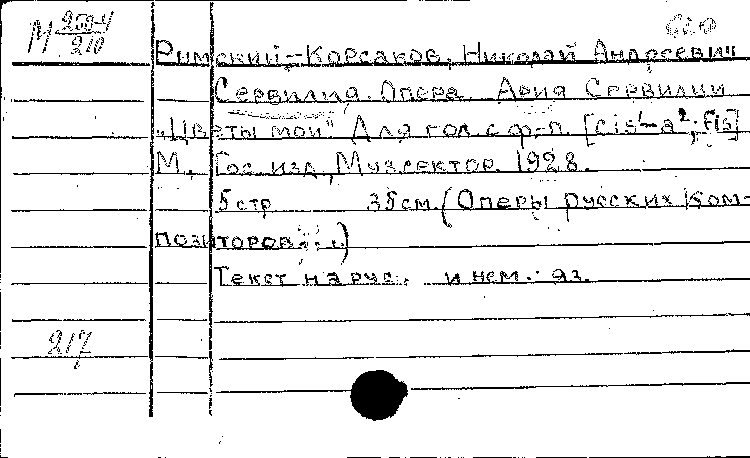 М 250-4/210
Римский-Корсаков, Николай Андреевич
Сервилия. Опера. Ария Сервилии
„Цветы мои" Для гол. с ф-п. [cis¹-a²; fis]
М., Гос. изд., Музсектор. 1928.
5 стр. 35 см. (Оперы русских ком-
позиторов...)
Текст на рус. и нем. яз.
217